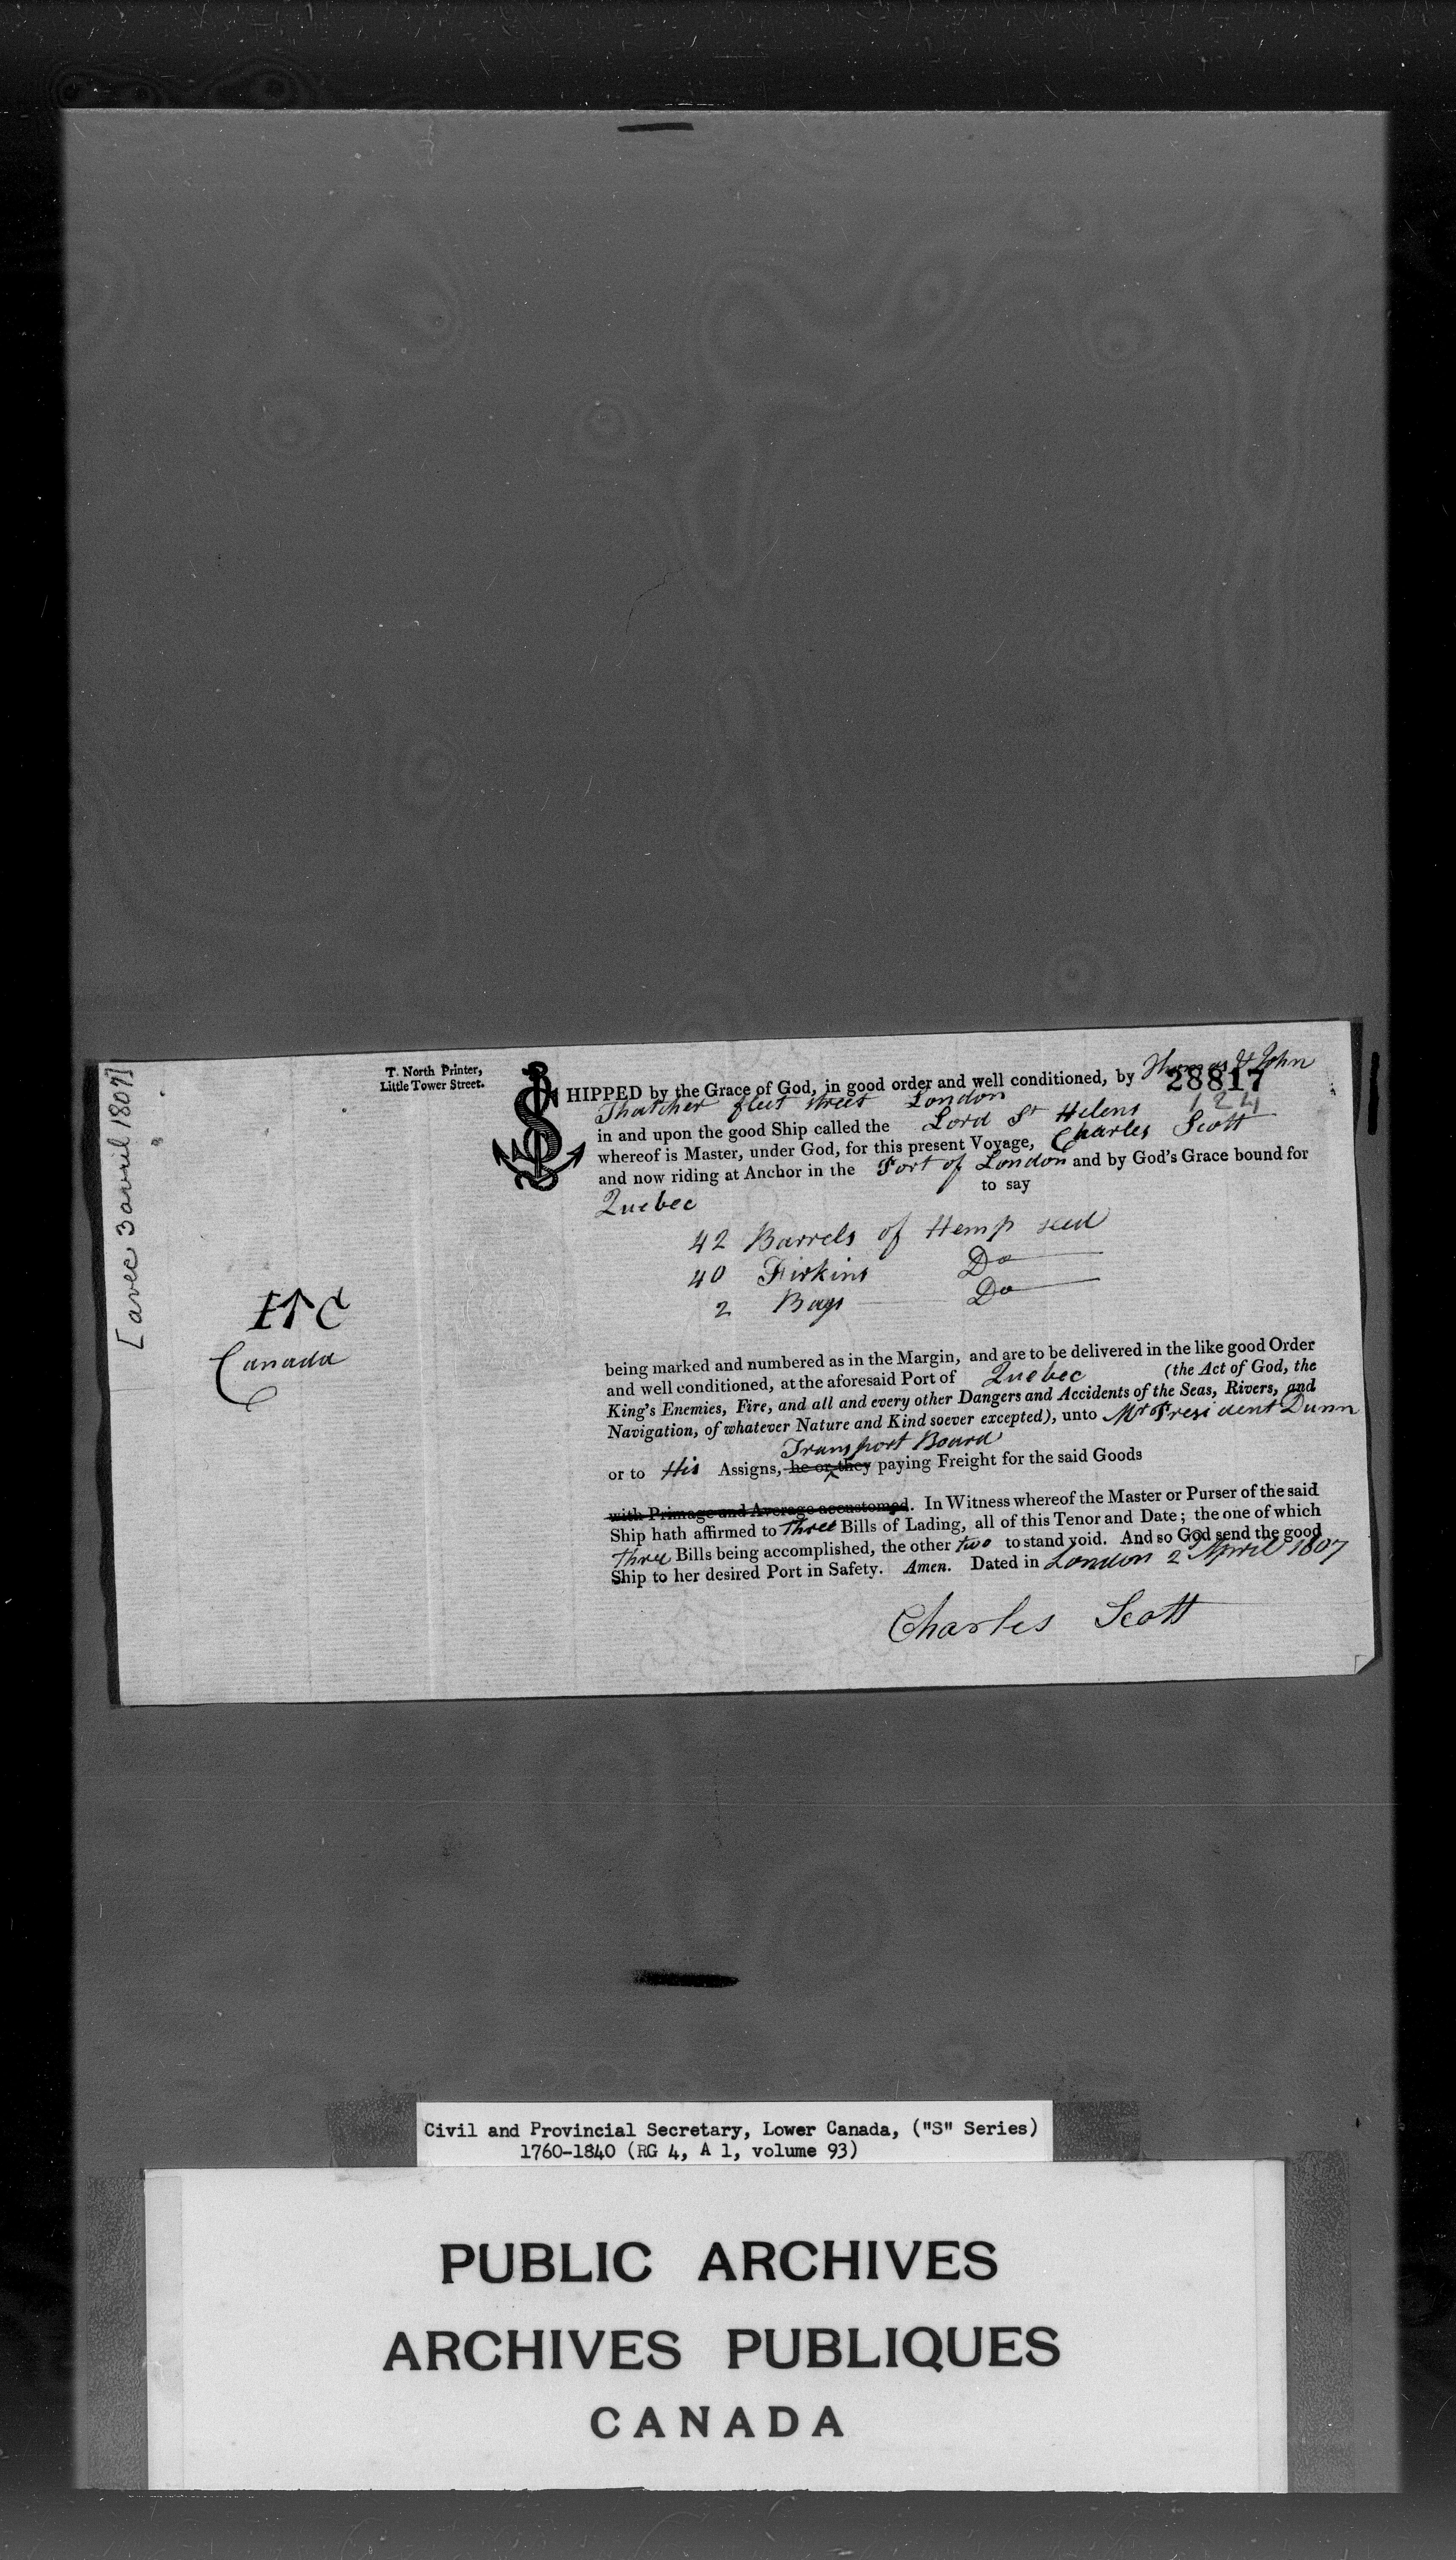 [avec 3 avril 1807]
T. North Printer,
Little Tower Street.
SHIPPED by the Grace of God, in good order and well conditioned, by Thomas & John
28817
124
Thatcher fleet street London
in and upon the good Ship called the Lord St Helens
whereof is Master, under God, for this present Voyage, Charles Scott
and now riding at Anchor in the Port of London and by God's Grace bound for
Quebec to say
42 Barrels of Hemp seed
40 Firkins Do
2 Bags Do
I↑C
Canada
being marked and numbered as in the Margin, and are to be delivered in the like good Order
and well conditioned, at the aforesaid Port of Quebec (the Act of God, the
King's Enemies, Fire, and all and every other Dangers and Accidents of the Seas, Rivers, and
Navigation, of whatever Nature and Kind soever excepted), unto Mr President Dunn
Transport Board
or to His Assigns, he or they paying Freight for the said Goods
with Primage and Average accustomed. In Witness whereof the Master or Purser of the said
Ship hath affirmed to three Bills of Lading, all of this Tenor and Date; the one of which
three Bills being accomplished, the other two to stand void. And so God send the good
Ship to her desired Port in Safety. Amen. Dated in London 2 April 1807
Charles Scott
Civil and Provincial Secretary, Lower Canada, ("S" Series)
1760-1840 (RG 4, A 1, volume 93)
PUBLIC ARCHIVES
ARCHIVES PUBLIQUES
CANADA